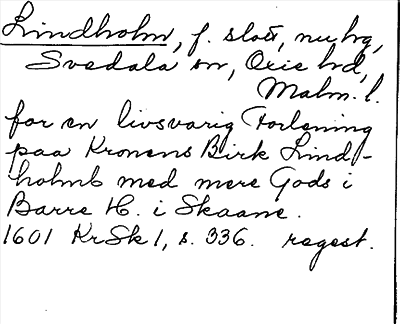 Lindholm, f. slott, nu hg,
Svedala sn, Oxie hd,
Malm. l.
for en livsvarig Forlening
paa Kronens Birk Lind-
holmb med mere Gods i
Barre H. i Skaane.
1601 KrSk 1, s. 336. regest.